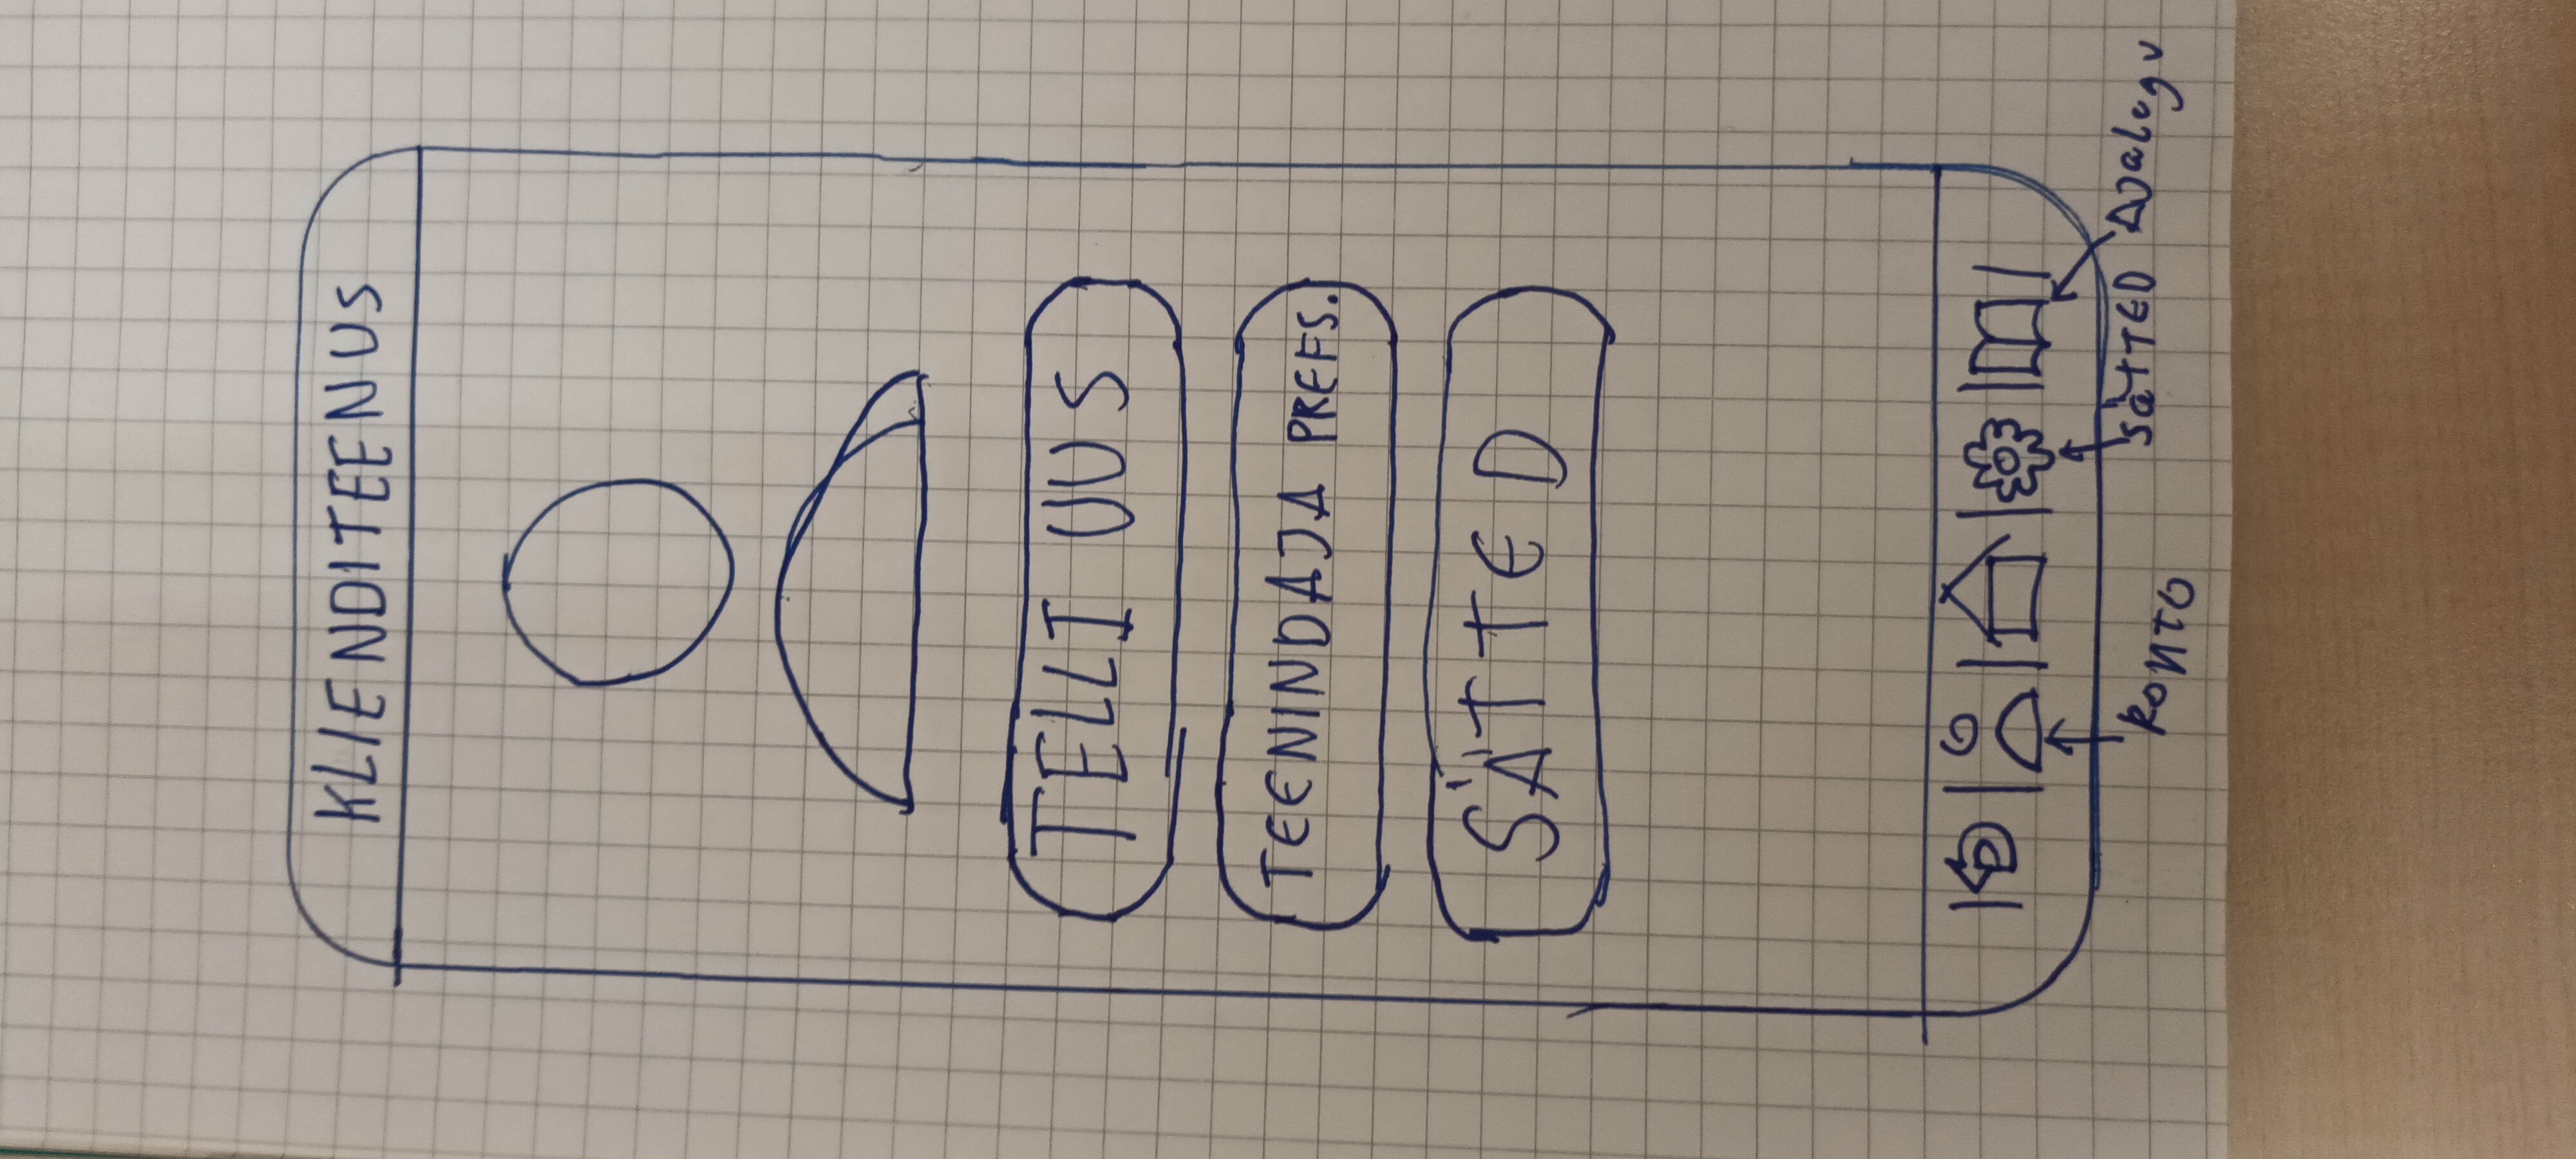 KLIENDITEENUS
TELLI UUS
TEENINDAJA PREFS.
SÄTTED
KONTO
SÄTTED
AJALUGU